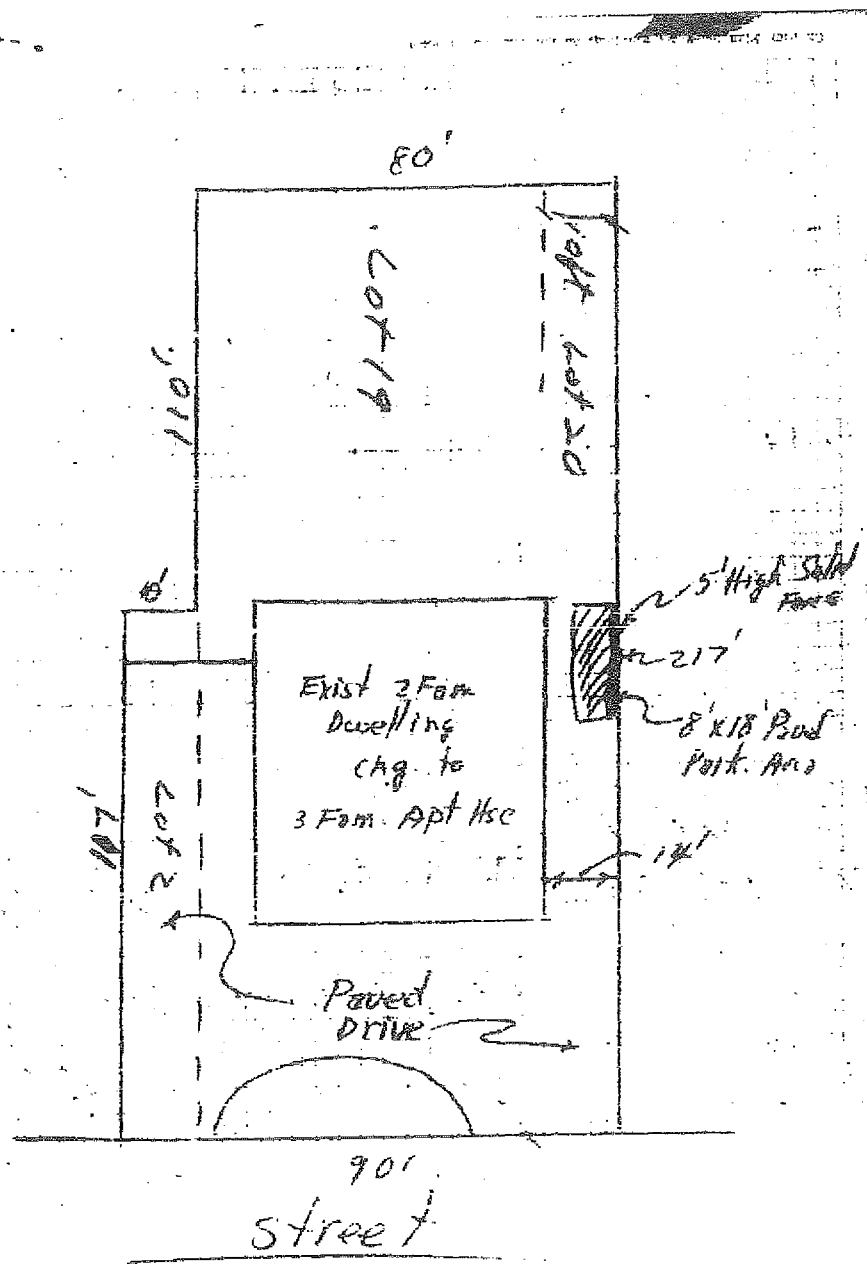 80'
Lot 19
Lot 20
110'
5' High Solid
217'
8' x 18' Pavd
Park. Area
Exist 2 Fam
Dwelling
chg. to
3 Fam. Apt Hse
107'
Lot 2
14'
Paved
Drive
90'
Street